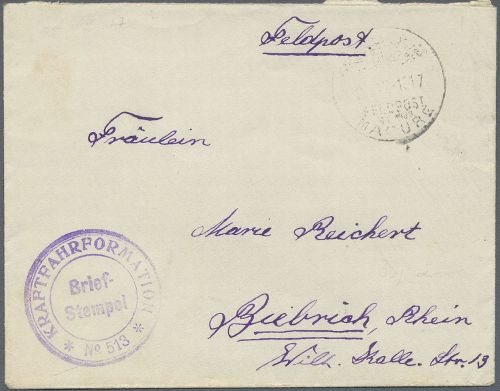 Feldpost
17
FELDPOST
Fräulein
Marie Reichert
Biebrich, Rhein
Wilh. Kalle. Str. 13
KRAFTFAHRFORMATION
Brief-
Stempel
* No 513 *